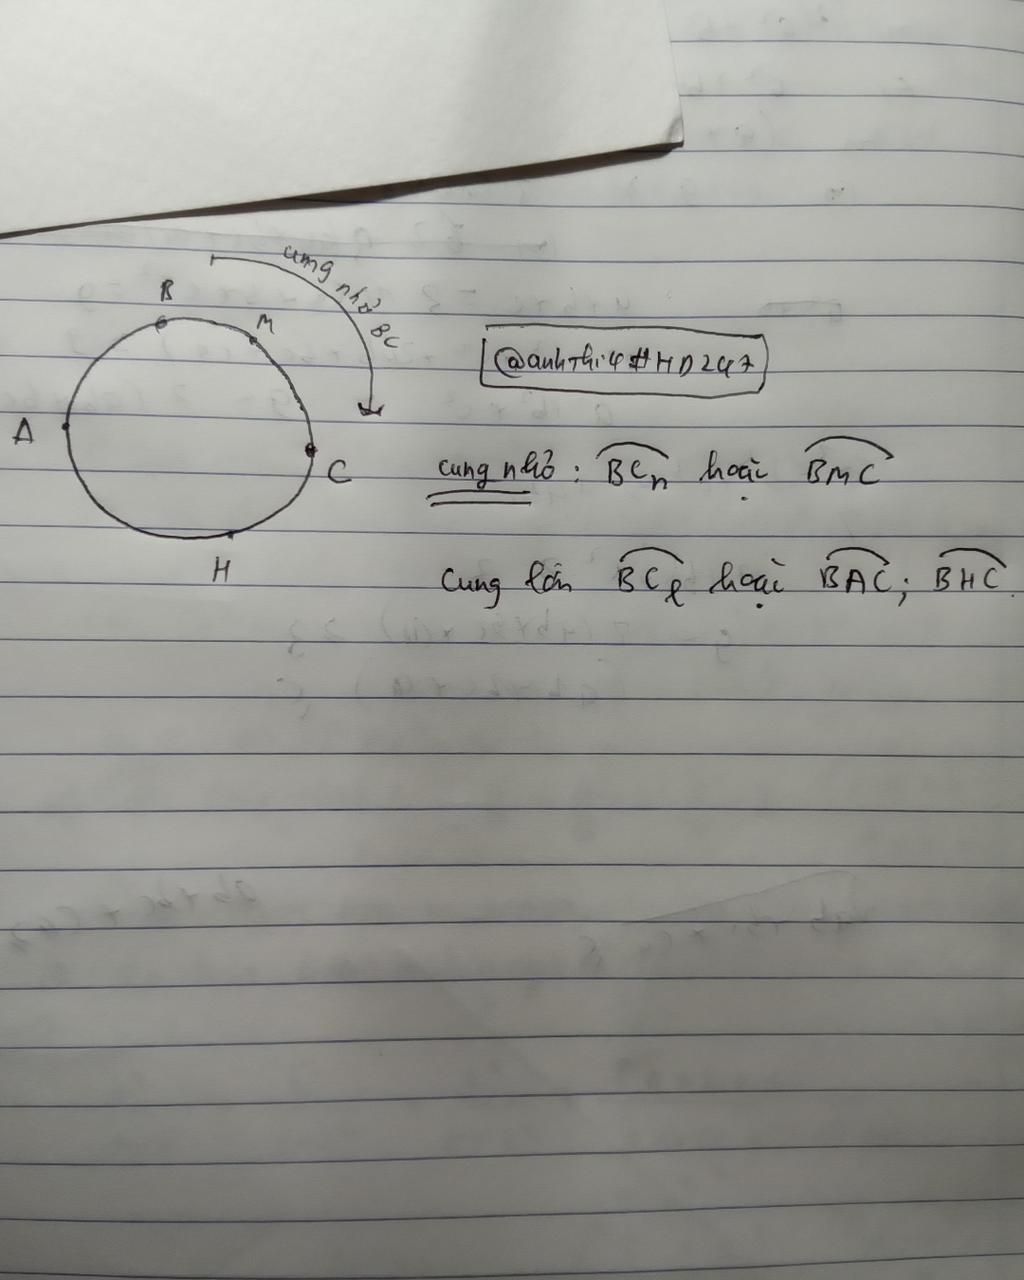 cung nhỏ BC
B
M
A
C
H
@anhthi4#HD247
cung nhỏ : BCn hoặc BMC
Cung lớn BCl hoặc BAC; BHC.